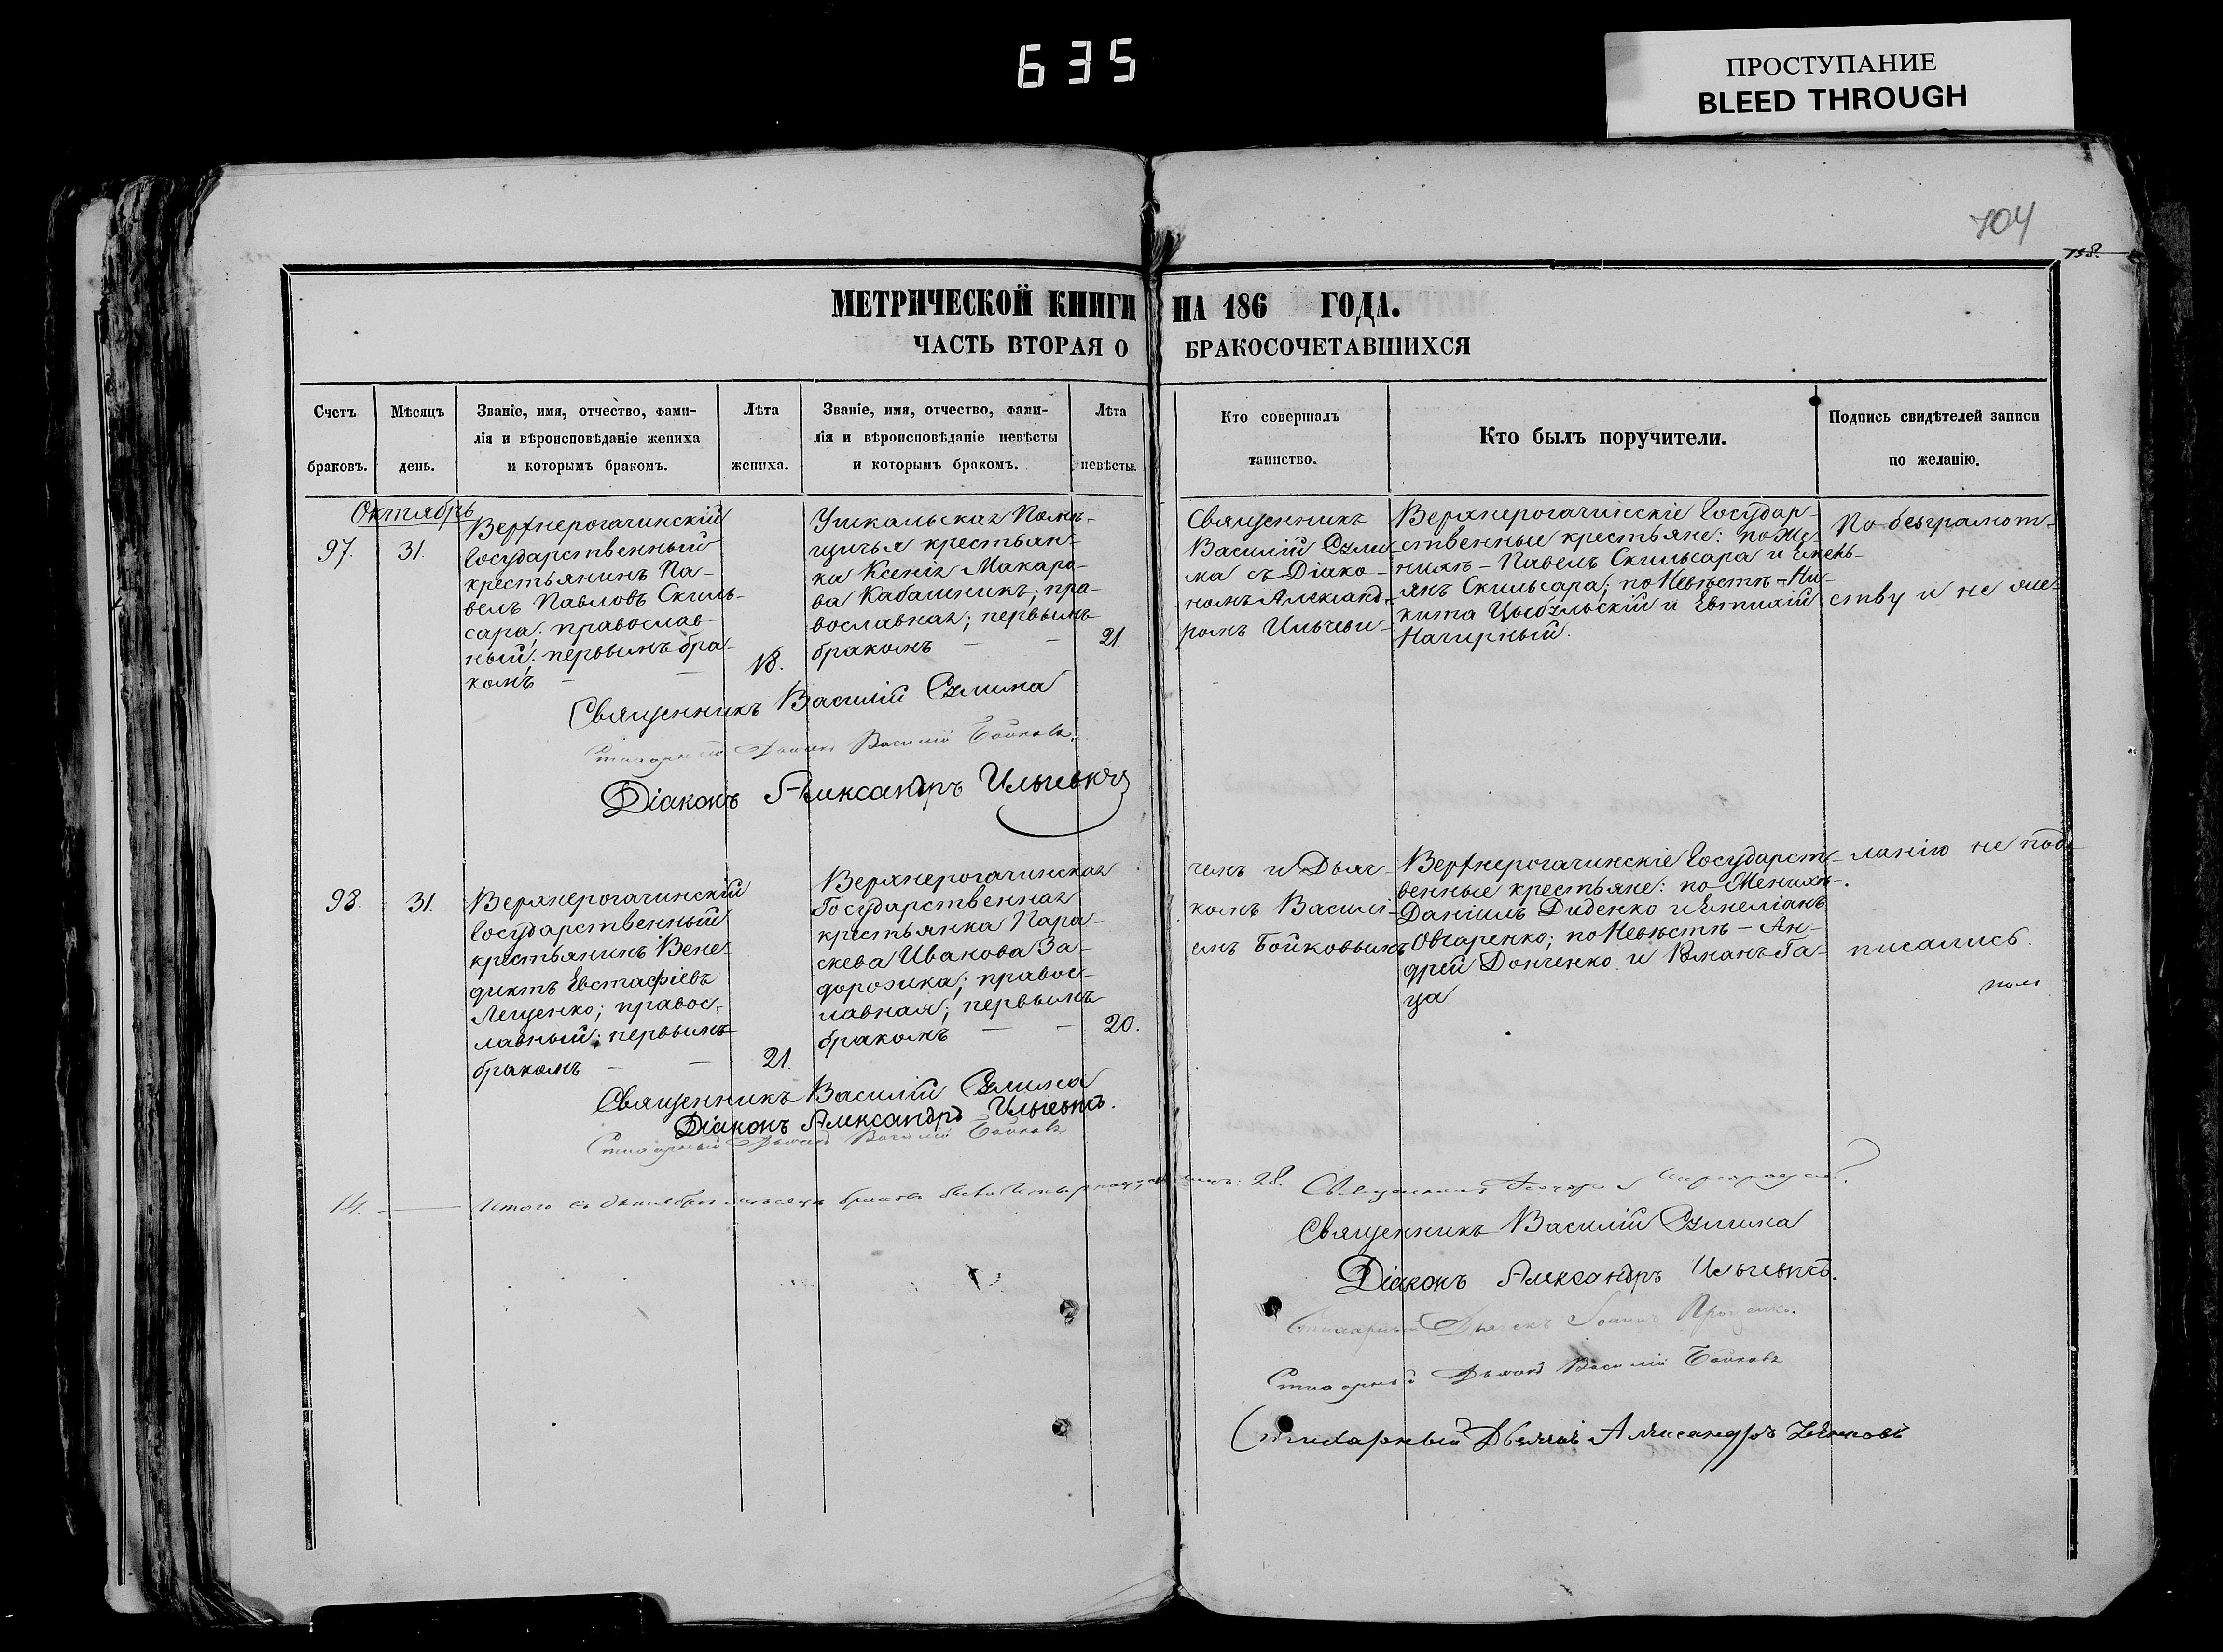 635
ПРОСТУПАНИЕ
BLEED THROUGH
704
758.
МЕТРИЧЕСКОЙ КНИГИ НА 186 ГОДА.
ЧАСТЬ ВТОРАЯ О БРАКОСОЧЕТАВШИХСЯ
Счетъ
браковъ.
Мѣсяцъ
день.
Званіе, имя, отчество, фами-
лія и вѣроисповѣданіе жениха
и которымъ бракомъ.
Лѣта
жениха.
Званіе, имя, отчество, фами-
лія и вѣроисповѣданіе невѣсты
и которымъ бракомъ.
Лѣта
невѣсты.
Кто совершалъ
таинство.
Кто былъ поручители.
Подпись свидѣтелей записи
по желанію.
Октябрь
97.
31.
Верхнерогачинскій
Государственный
крестьянинъ Па-
велъ Павловъ Скиль-
сара; православ-
ный; первымъ бра-
комъ
18.
Помѣ-
щичья крестьян-
ка Ксенія Макаро-
ва Кабашникъ; пра-
вославная; первымъ
бракомъ
21.
Священникъ
Василій
ма съ Діако-
номъ Александ-
ромъ Ильчеви-
Верхнерогачинскіе Государ-
ственные крестьяне: по Же-
нихѣ - Павелъ Скильсара и Емель-
янъ Скильсара; по Невѣстѣ - Ни-
кита Цыбульскій и Евтихій
Нагирный.
По безграмот-
ству и не же-
Священникъ Василій
Стихарный Дьячекъ Василій Бойковъ.
Діаконъ Александръ Ильчевичъ
98.
31.
Верхнерогачинскій
Государственный
крестьянинъ Вене-
диктъ Евстафіевъ
Лещенко; правос-
лавный; первымъ
бракомъ
21.
Верхнерогачинская
Государственная
крестьянка Пара-
скева Иванова За-
дорожка; правос-
лавная; первымъ
бракомъ
20.
чемъ и Дьяч-
комъ Василі-
емъ Бойковымъ
Верхнерогачинскіе Государст-
венные крестьяне: по Женихѣ-
Даніилъ Диденко и Емеліанъ
Овчаренко; по Невѣстѣ - Ан-
дрей Донченко и Романъ Га-
ца
ланію не под-
писались.
Священникъ Василій
Діаконъ Александръ Ильчевичъ.
Стихарный Дьячекъ Василій Бойковъ
14.
Итого въ Октябрѣ мѣсяцѣ браковъ было
28.
Священникъ
Священникъ Василій
Діаконъ Александръ Ильчевичъ.
Стихарный Дьячекъ Іоаннъ
Стихарный Дьячекъ Василій Бойковъ
Стихарный Дьячекъ Александръ